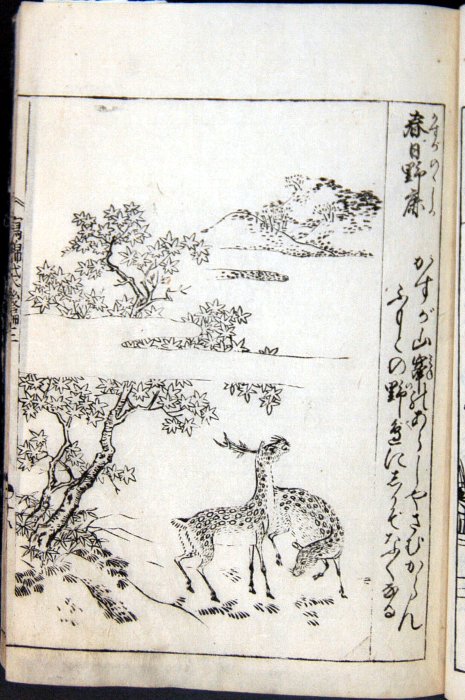 春日野鹿
かすがのゝしか
かすが山嶺のあらしやさむからん
ふもとの野邊にしかぞなくなる